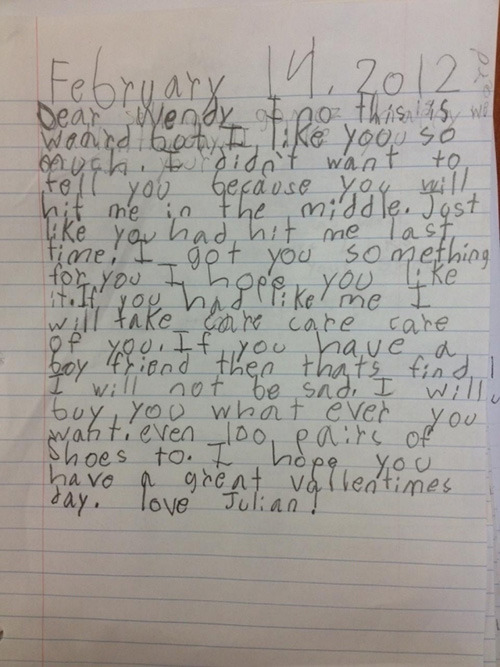 February 14, 2012
Dear Wendy I no this is
weard bot I like yoo so
much. I didn't want to
tell you because you will
hit me in the middle. Just
like you had hit me last
time. I got you something
for you I hope you like
it. If you had like me I
will take care care care
of you. If you have a
boy friend then thats find
I will not be sad. I will
buy you what ever you
want. even 100 pairs of
shoes to. I hope you
have a great vallentimes
day. love Julian!